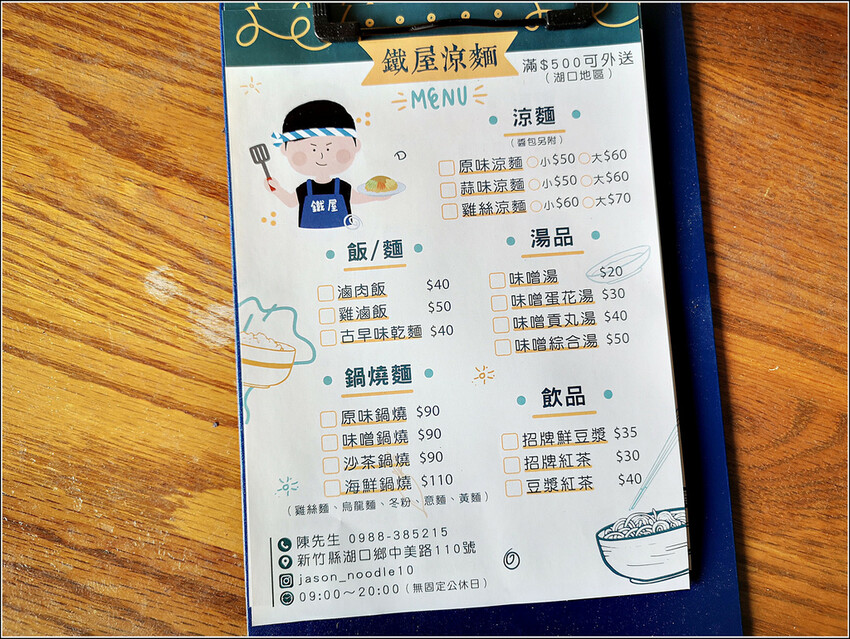 鐵屋涼麵
滿$500可外送
（湖口地區）
MENU
鐵屋
涼麵
（醬包另附）
原味涼麵 小$50 大$60
蒜味涼麵 小$50 大$60
雞絲涼麵 小$60 大$70
飯/麵
滷肉飯 $40
雞滷飯 $50
古早味乾麵 $40
湯品
味噌湯 $20
味噌蛋花湯 $30
味噌貢丸湯 $40
味噌綜合湯 $50
鍋燒麵
原味鍋燒 $90
味噌鍋燒 $90
沙茶鍋燒 $90
海鮮鍋燒 $110
（雞絲麵、烏龍麵、冬粉、意麵、黃麵）
飲品
招牌鮮豆漿 $35
招牌紅茶 $30
豆漿紅茶 $40
陳先生 0988-385215
新竹縣湖口鄉中美路110號
jason_noodle10
09:00～20:00（無固定公休日）